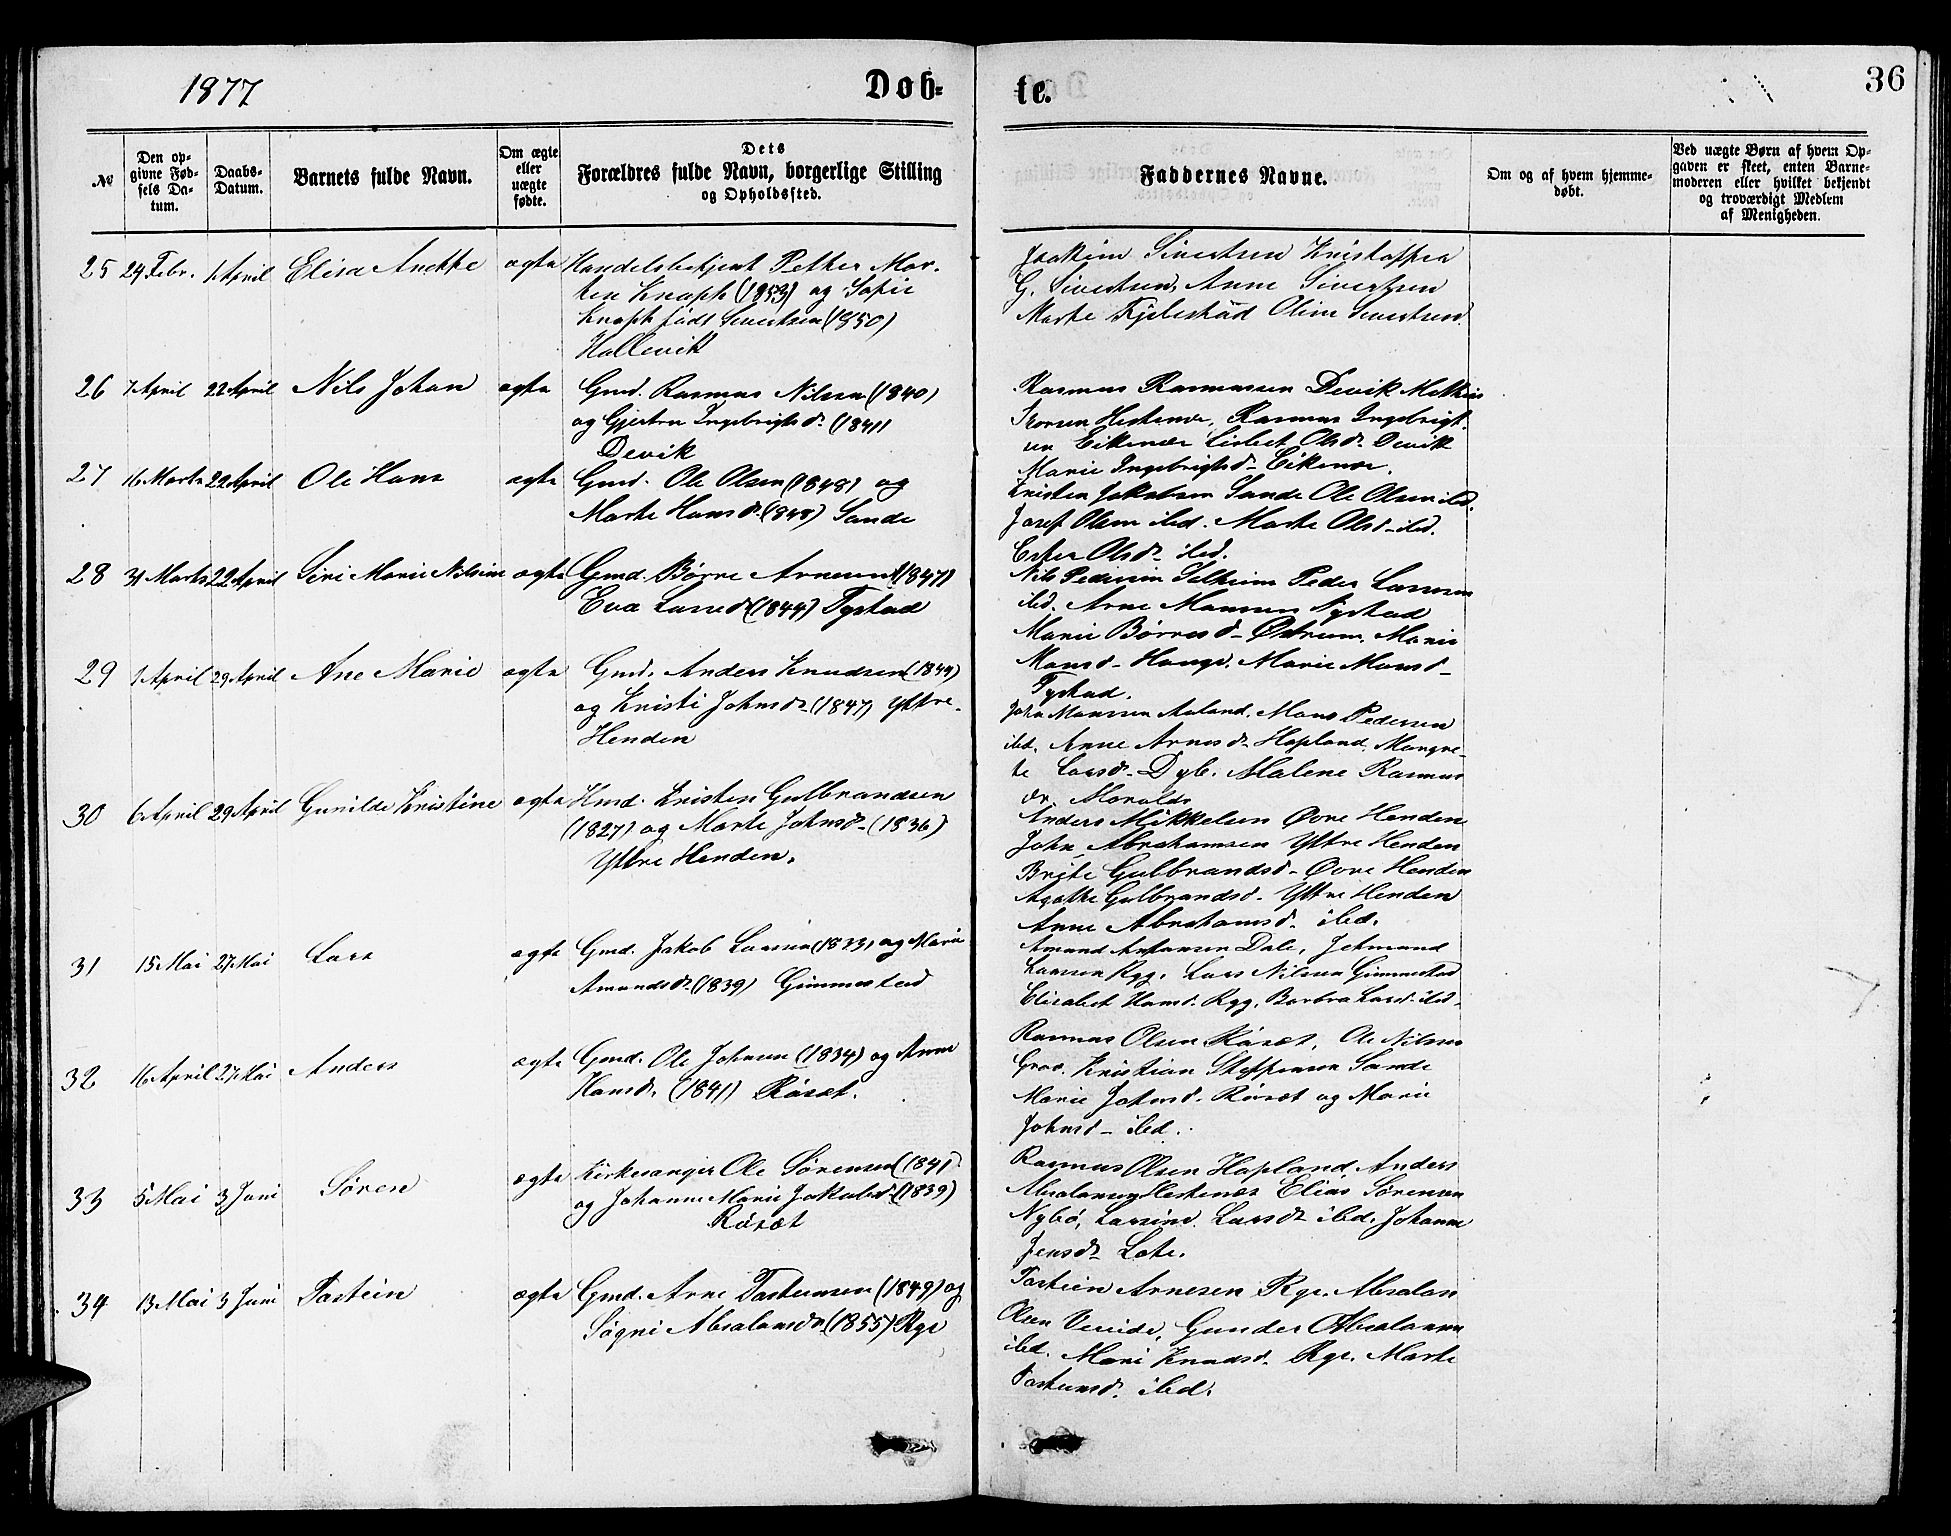 1877
Døb-
te.
36
№
Den op-
givne Fød-
sels Da-
tum.
Daabs-
Datum.
Barnets fulde Navn.
Om ægte
eller
uægte
fødte.
Dets
Forældres fulde Navn, borgerlige Stilling
og Opholdssted.
Faddernes Navne.
Om og af hvem hjemme-
døbt.
Ved uægte Børn af hvem Op-
gaven er skeet, enten Barne-
moderen eller hvilket bekjendt
og troværdigt Medlem
af Menigheden.
25 24 Febr. 1 April Elisa Anette ægte Handelsbetjent Petter Mor-
ten Knaph (1853) og Sofie
Knaph født Sivertsen (1850)
Hallevik
Joakim Sivertsen Kristoffer
G. Sivertsen, Anne Sivertsen
Marte Oline Sivertsen
26 7 April 22 April Nils Johan ægte Gmd. Rasmus Nilsen (1840)
og Gjertru Ingebrigtsd. (1841)
Devik
Rasmus Rasmussen Devik Mathias
Iversen Hestenes, Rasmus Ingebrigt-
sen Eikenes Lisbet Olsd. Devik
Marie Ingebrigtsd. Eikenes.
27 16 Marts 22 April Ole Hans ægte Gmd. Ole Olsen (1848) og
Marte Hansd. (1848) Sande
Kristen Jakobsen Sande Ole Olsen ibd.
Josef Olsen ibd. Marte Olsd. ibd.
Ester Olsd. ibd.
28 31 Marts 22 April Siri Marie Nilsine ægte Gmd. Børre Arnesen (1847)
Eva Larsd. (1844) Tystad
Nils Pedersen Solheim Peder Larsen
ibd. Arne Monsen Tystad
Marie Børresd. Østrem. Marie
Monsd. Hauge. Marie Monsd.
Tystad.
29 1 April 29 April Ane Marie ægte Gmd. Anders Knudsen (1844)
og Kristi Johnsd. (1847) Yttre-
Henden
John Monsen Aaland. Mons Pedersen
ibd. Anne Arnesd. Hopland. Mangre-
te Larsd. Dyb. Malene Rasmus
dr. Morolds
30 6 April 29 April Gunilde Kristine ægte Hmd. Kristen Gulbrandsen
(1827) og Marte Johnsd. (1836)
Yttre Henden.
Anders Mikkelsen Øvre Henden
John Abrahamsen Yttre Henden
Brite Gulbrandsd. Øvre Henden
Agathe Gulbrandsd. Yttre Henden
Anne Abrahamsd. ibd.
31 15 Mai 27 Mai Lars ægte Gmd. Jakob Larsen (1833) og Marie
Amundsd. (1839) Gimmestad
Amund Antonsen Dale, Jetmund
Larsen Ryg. Lars Nilsen Gimmestad
Elisabet Hansd. Ryg. Barbra Larsd. ibd.
32 16 April 27 Mai Anders ægte Gmd. Ole Johnsen (1834) og Anne
Hansd. (1841) Råset.
Rasmus Olsen Råset, Ole Nilsen
Grov. Kristian Steffensen Sande
Marie Johnsd. Råset og Marie
Johnsd. ibd.
33 5 Mai 3 Juni Søren ægte Kirkesanger Ole Sørensen (1841)
og Johanne Marie Jakobsd. (1839)
Råset
Rasmus Olsen Hopland. Anders
Absalonsen Hestenes Elias Sørensen
Nybø, Larsine Larsdr. ibd. Johanne
Jensd. Lote.
34 13 Mai 3 Juni Tostein ægte Gmd. Arne Tosteinsen (1849) og
Søgni Absalonsd. (1855) Ryg
Tostein Arnesen Ryg. Absalon
Olsen Gunder Absalonsen
ibd. Mari Knudsd. Ryg. Marte
Tosteinsd. ibd.